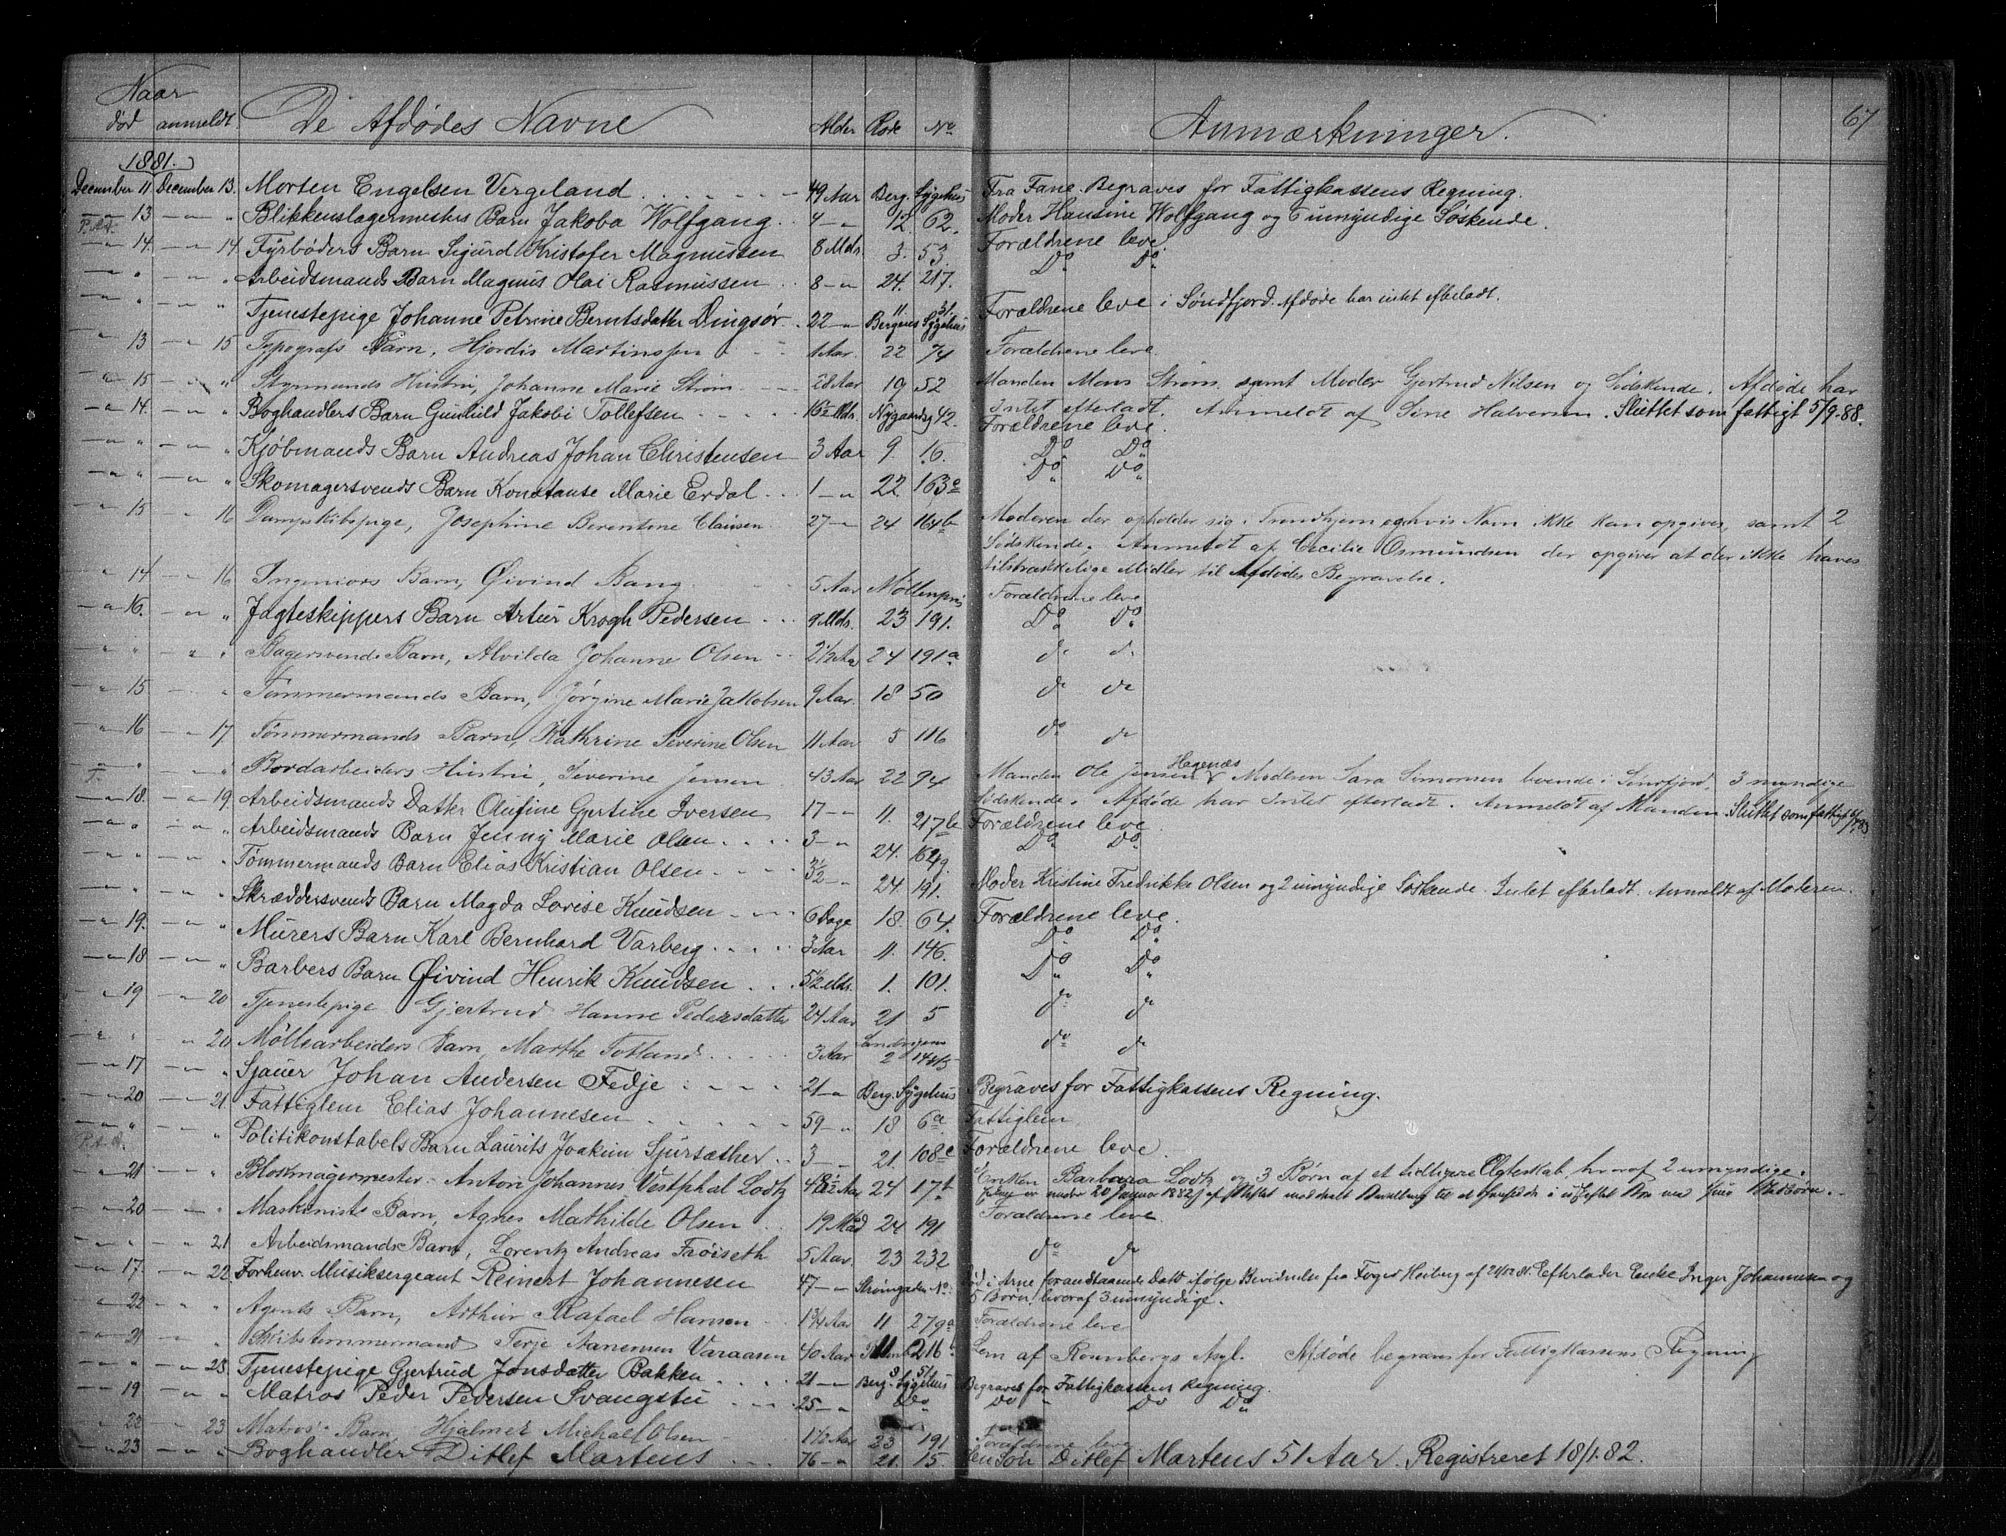 Naar
død anmeldt. De Afdødes Navne Alder Rode No Anmærkninger. 67
1881.
December 11 December 13. Morten Engelsen Vergeland 49 Aar Berg. Sygehus Fra Fane. Begraves for Fattigkassens Regning.
13 " Blikkenslagermesters Barn Jakoba Wolfgang. 4 12. 62. Moder Hansine Wolfgang og 6 umyndige Søskende.
14. 14 Fyrbøders Barn Sigurd Kristofer Magnussen 8 Mdr. 3. 53. Forældrene leve.
" " Arbeidsmands Barn Magnus Olai Rasmussen 8 24. 217. Do Do
" " Tjenestepige Johanne Petrine Berntsdatter Dingsør. 22 11. 31. Bergens Sygehus Forældrene leve i Søndfjord. Afdøde har intet efterladt.
13 15 Typografs Barn, Hjordis Martinssen 1 Aar. 22 74 Forældrene leve.
15 " Styrmands Hustru, Johanne Marie Strøm 28 Aar 19 52 Manden Mons Strøm samt Moder Gjertrud Nilsen og Sødskende. Afdøde har
Intet efterladt. Anmeldt af Sine Halvorsen. Sluttet som fattigt 5/9.88.
14. " Boghandlers Barn Gunhild Jakobi Tollefsen 16½ Mdr. Nygaardsg 42. Forældrene leve.
" " Kjøbmands Barn Andreas Johan Christensen 3 Aar 9. 16. Do Do
" " Skomagersvends Barn Konstanse Marie Erdal 1 22 163a Do Do
15 16 Dampskibspige, Josephine Berentine Clausen. 27 24 164b Moderen der opholder sig i Trondhjem og hvis Navn ikke kan opgives samt 2
Sødskende. Anmeldt af Cecilie Osmundsen der opgiver at der ikke haves
tilstrækkelige Midler til Afdødes Begravelse.
14 16 Ingeniørs Barn, Øivind Bang 5 Aar Møllenpris Forældrene leve
16. " Jagteskippers Barn Artur Krogh Pedersen 9 Mdr. 23 191. Do Do
" " Bagersvends Barn, Alvilda Johanne Olsen 2½ Aar 24 191a do do
15 " Tømmermands Barn, Jørgine Marie Jakobsen 9 Aar. 18 50 do do
16 17 Tømmermands Barn, Kathrine Severine Olsen 11 Aar 5 116 do do
T. " " Bordarbeiders Hustru, Severine Jensen 43 Aar 22 94 Manden Ole Jensen Hegenæs Moderen Sara Simonsen boende i Søndfjord, 3 myndige
Sødskende. Afdøde har Intet efterladt. Anmeldt af Manden. Sluttet som fattigt
18. 19. Arbeidsmands Datter Olufine Gjertine Iversen 17 11. 217b Forældrene leve.
" " Arbeidsmands Barn Jenny Marie Olsen 3 24. 162g. Do Do
" " Tømmermands Barn Elias Kristian Olsen 3½ 24. 191. Moder Kristine Fredrikke Olsen og 2 umyndige Søskende. Intet efterladt. Anmeldt af Moderen.
" " Skræddersvends Barn Magda Lovise Knudsen 6 Dage 18. 64. Forældrene leve.
19. " Murers Barn Karl Bernhard Varberg 3 Aar 11. 146. Do Do
18 " Barbers Barn Øivind Henrik Knudsen 5½ Mdr. 1. 101. Do Do
19 20 Tjenestepige Gjertrud Hanne Pedersdatter 24 Aar 21 5 do do
" 20 Møllearbeiders Barn, Marthe Totland 3 Aar Sandvigens 2 do do
17 " Sjauer Johan Andersen Fedje 21 Berg. Sygehus Begraves for Fattigkassens Regning.
20 21 Fattiglem Elias Johannesen 59 18 6a Fattiglem
" " Politikonstabels Barn Laurits Joakim Sjursæther 3 21. 108c Forældrene leve.
21 " Blokmagermester Anton Johannes Vestphal Lodtz 48½ Aar 24 17b Enken Barbara Lodtz og 3 Børn af et tidligere Ægteskab, hvoraf 2 umyndige.
20 " Maskinists Barn, Agnes Mathilde Olsen 19 Mdr 24 191 Forældrene leve.
" 21 Arbeidsmands Barn, Lorentz Andreas Frøiseth 5 Aar. 23 232 do do
17. 22 Forhenv. Musiksergeant Reinert Johannesen 47 Strømgaden No. Død i Arne foranstaaende Dato ifølge Bevidnelse fra Foged Heiberg af 21/12 81. Efterlader Enke Inger Johannesen og
5 Børn, hvoraf 3 umyndige.
22 " Agents Barn, Arthur Rafael Hansen 1¾ Aar 11 279a Forældrene leve
21 " Skibstømmermand Terje Aanensen Varaasen 40 Aar 11 216 Lem af Rombergs Asyl. Afdøde begraves for Fattigkassens Regning
" 23. Tjenestepige Gjertrud Jonsdatter Bakken 21 Berg. Sygehus Begraves for Fattigkassens Regning.
19 " Matros Peder Pedersen Svangstu 25 Do Do Do Do
22 23 Matros Barn Hjalmer Michael Olsen 1½ Aar 23 191 Forældrene leve
23 " Boghandler Ditlef Martens 76 21. 15 Søn Ditlef Martens 51 Aar. Registreret 18/1.82.